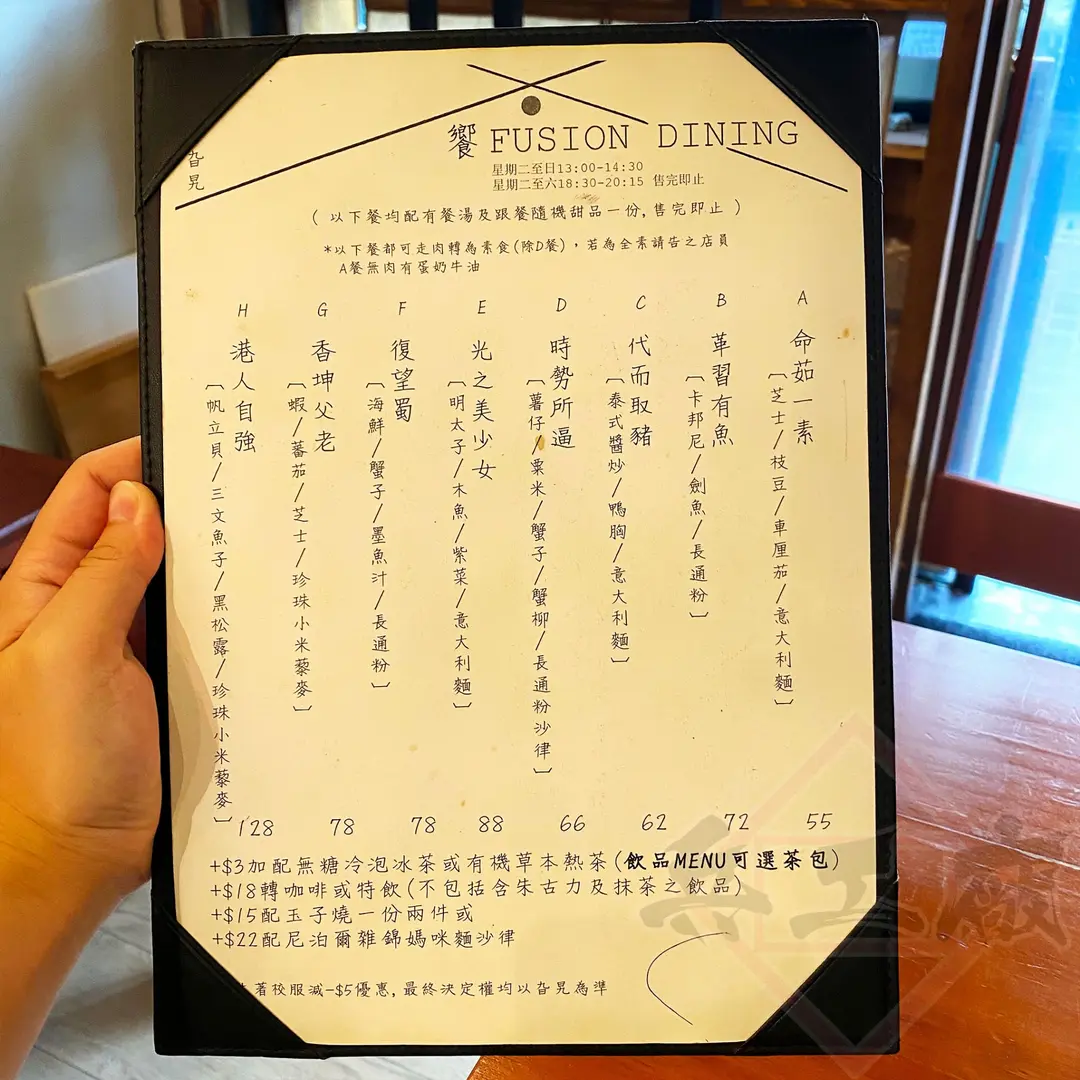 饗 FUSION DINING
旮旯
星期二至日13:00-14:30
星期二至六18:30-20:15 售完即止
(以下餐均配有餐湯及跟餐隨機甜品一份,售完即止)
*以下餐都可走肉轉為素食(除D餐),若為全素請告之店員
A餐無肉有蛋奶牛油
A
命茹一素
[芝士/枝豆/車厘茄/意大利麵]
55
B
革習有魚
[卡邦尼/劍魚/長通粉]
72
C
代而取豬
[泰式醬炒/鴨胸/意大利麵]
62
D
時勢所逼
[薯仔/粟米/蟹子/蟹柳/長通粉沙律]
66
E
光之美少女
[明太子/木魚/紫菜/意大利麵]
88
F
復望蜀
[海鮮/蟹子/墨魚汁/長通粉]
78
G
香坤父老
[蝦/蕃茄/芝士/珍珠小米藜麥]
78
H
港人自強
[帆立貝/三文魚子/黑松露/珍珠小米藜麥]
128
+$3加配無糖冷泡冰茶或有機草本熱茶(飲品MENU可選茶包)
+$18轉咖啡或特飲(不包括含朱古力及抹茶之飲品)
+$15配玉子燒一份兩件或
+$22配尼泊爾雜錦媽咪麵沙律
著校服減-$5優惠,最終決定權均以旮旯為準